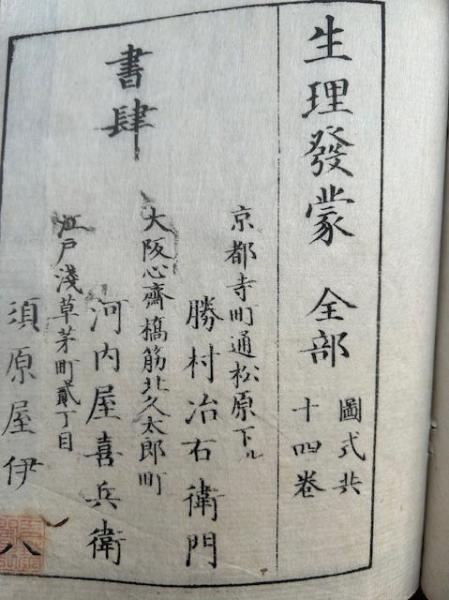 生理發蒙 全部
圖式共
十四卷
書肆
京都寺町通松原下ル
勝村治右衛門
大阪心齋橋筋北久太郎町
河内屋喜兵衛
江戸淺草茅町貳丁目
須原屋伊八